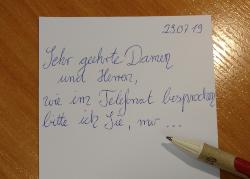 23.07.19
Sehr geehrte Damen
und Herren,
wie im Telefonat besprochen
bitte ich Sie, mir ...